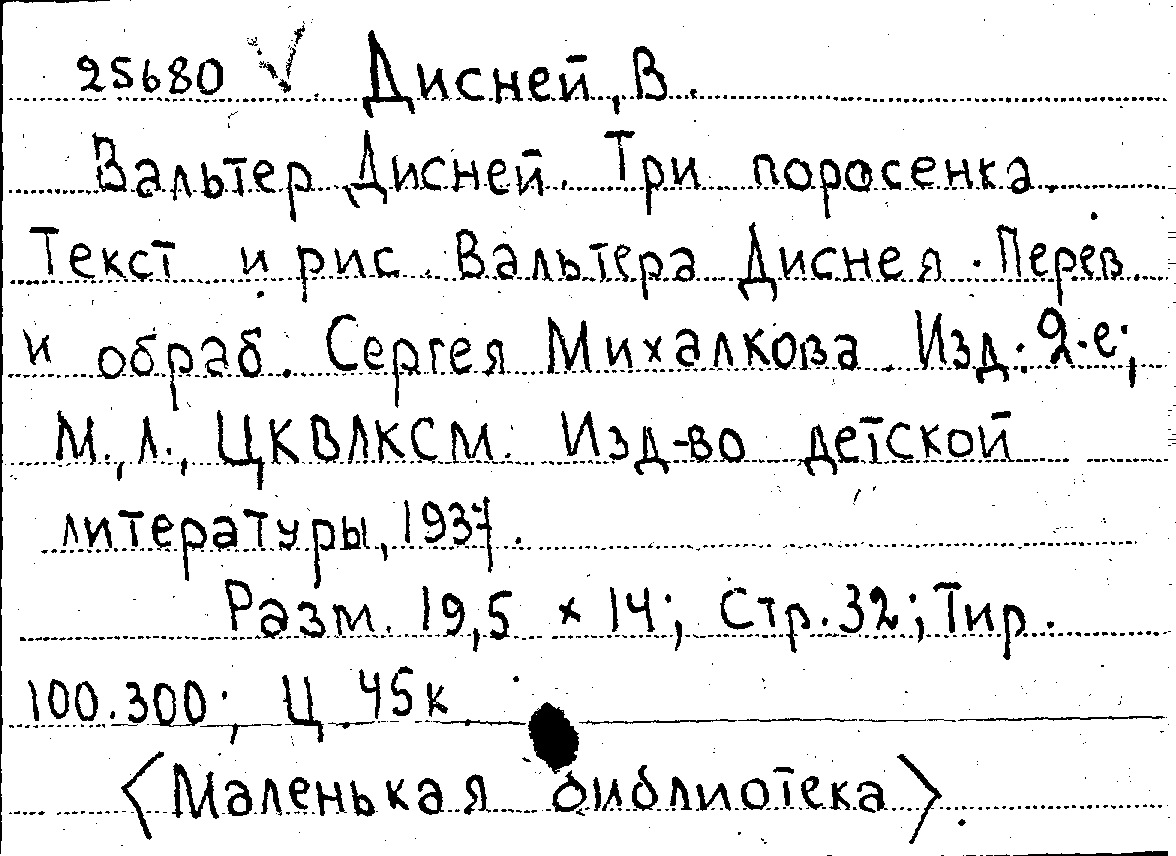 25680 V Дисней, В.
Вальтер Дисней. Три поросенка.
Текст и рис. Вальтера Диснея. Перев.
и обраб. Сергея Михалкова. Изд. 2-е;
М., Л., ЦКВЛКСМ. Изд-во детской
литературы, 1937.
Разм. 19,5 × 14; Стр. 32; Тир.
100.300; Ц. 45к.
<Маленькая библиотека>.